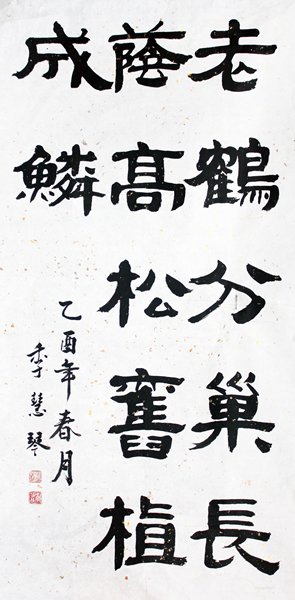 老鶴分巢長
蔭高松舊植
成鱗
乙酉年春月
慧琴